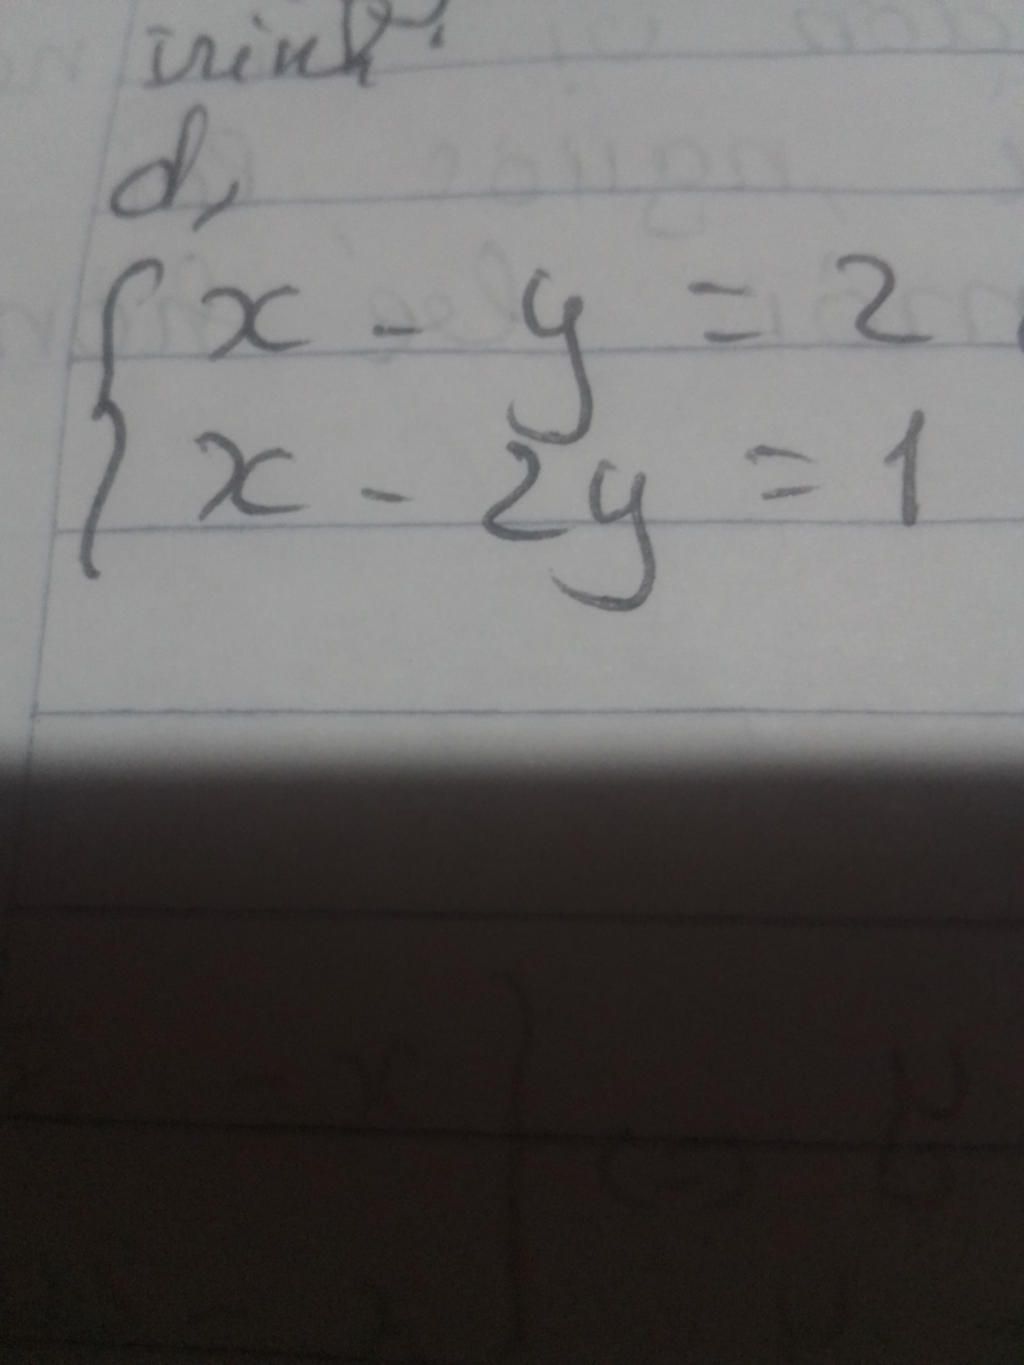 trình:
d,
x - y = 2
x - 2y = 1